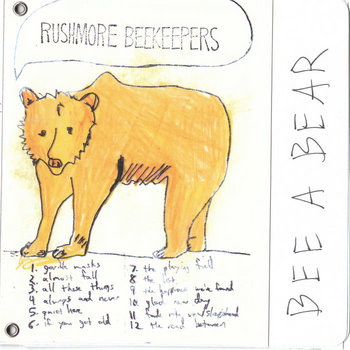 RUSHMORE BEEKEEPERS
1. gentle masks
2. almost fall
3. all these things
4 always and never
5. quiet here
6. if you get old
7. the playing field
8 the lost
9 the happiness we've found
10. glad new day
11 finds only
12 the road between
BEE A BEAR